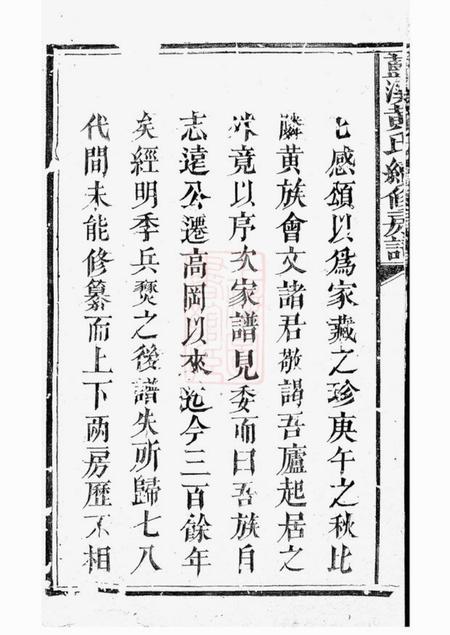 蘆溪黃氏續修房譜
感頌以爲家藏之珍庚午之秋比
鄰黃族會文諸君敬謁吾廬起居之
竟以序文家譜見委而曰吾族自
志遠公遷高岡以來迄今三百餘年
矣經明季兵燹之後譜失所歸七八
代間未能修纂而上下两房歷不相